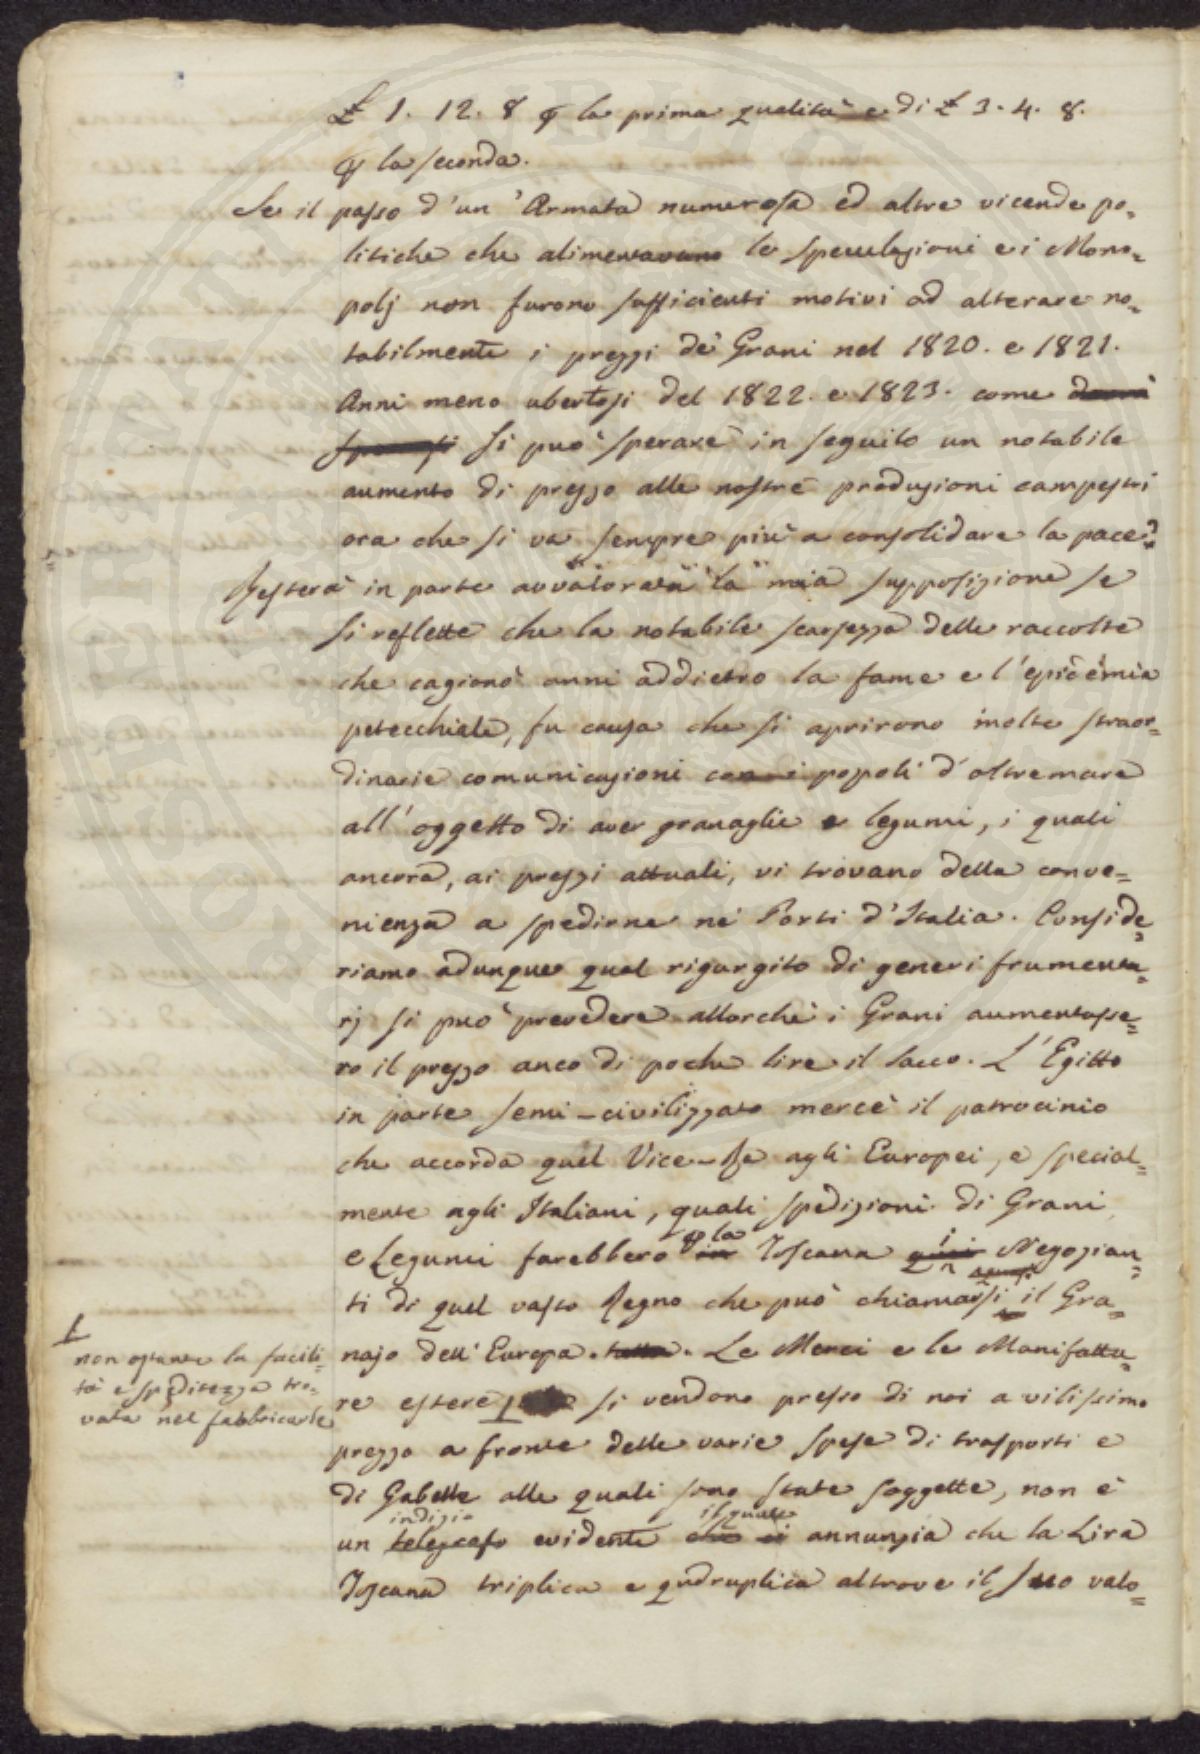 £ 1. 12. 8 ꝑ la prima qualità e di £ 3. 4. 8.
ꝑ la seconda.
Se il passo d'un'Armata numerosa ed altre vicende po-
litiche che alimentavano le speculazioni e i Mono-
polj non furono sufficienti motivi ad alterare no-
tabilmente i prezzi dei Grani nel 1820. e 1821.
Anni meno ubertosi del 1822. e 1823. come
si può sperare in seguito un notabile
aumento di prezzo alle nostre produzioni campestri
ora che si va sempre più a consolidare la pace?
Resterà in parte avvalorata la mia supposizione se
si reflette che la notabile scarsezza delle raccolte
che cagionò anni addietro la fame e l'epidemia
petecchiale, fu causa che si aprirono molte straor-
dinarie comunicazioni con i popoli d'oltremare
all'oggetto di aver granaglie e legumi, i quali
ancora, ai prezzi attuali, vi trovano della conve=
nienza a spedirne nei Porti d'Italia. Conside=
riamo adunque qual rigurgito di generi frumenta=
rj si può prevedere allorchè i Grani aumentasse=
ro il prezzo anco di poche lire il sacco. L'Egitto
in parte semi-civilizzato mercè il patrocinio
che accorda quel Vice-Re agli Europei, e special=
mente agli Italiani, quali spedizioni di Grani
e Legumi farebbero ꝑ la in Toscana i Negozian=
ti di quel vasto Regno che può chiamarsi il Gra=
najo dell'Europa. tutta. Le Merci e le Manifattu=
1
non ostante la facili=
tà e speditezza tro=
vata nel fabbricarle
re estere 1 si vendono presso di noi a vilissimo
prezzo a fronte delle varie spese di trasporti e
di Gabelle alle quali sono state soggette, non è
indizio il quale
un telegrafo evidente che ci annunzia che la Lira
Toscana triplica e qudruplica altrove il suo valo=